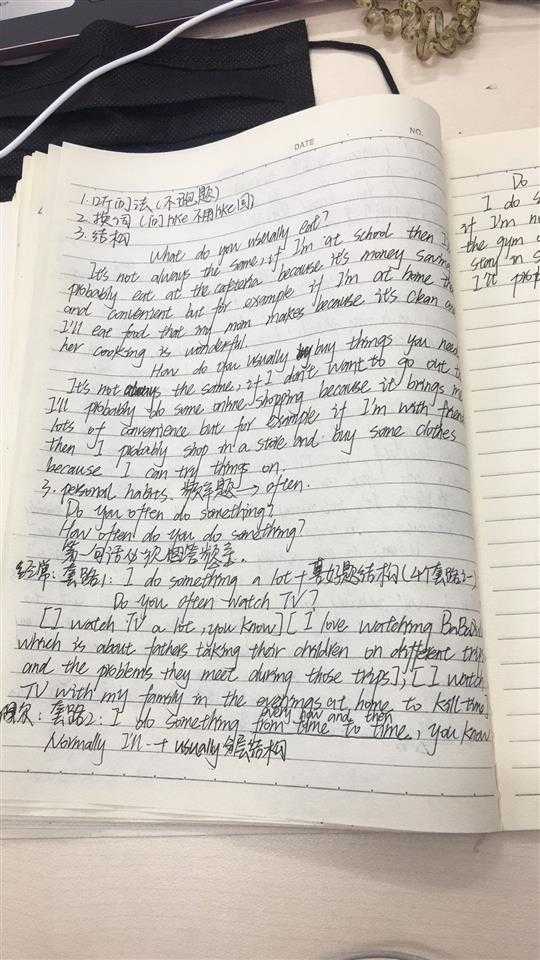 DATE NO.
1. 听问法 (不跑题)
2. 换词 (问like 不用like回)
3. 结构
What do you usually eat?
It's not always the same, if I'm at school then I
probably eat at the cafeteria because it's money saving
and convenient but for example if I'm at home
I'll eat food that my mom makes because it's clean
her cooking is wonderful.
How do you usually buy things you need
It's not always the same, if I don't want to go out
I'll probably do some online shopping because it brings
lots of convenience but for example if I'm with
then I probably shop in a store and buy some clothes
because I can try things on.
3. personal habits. 频率题 → often.
Do you often do something?
How often do you do something?
第一句话必须回答频率.
经常: 套路1: I do something a lot + 喜好题结构 (4个套路之一)
Do you often watch TV?
[I watch TV a lot, you know] [I love watching
which is about fathers taking their children on different
and the problems they meet during those trips]; [I watch
TV with my family in the evenings at home to kill time
every now and then
偶尔: 套路2: I do something from time to time, you know
Normally I'll → usually 结构
Do
I do
if I'm
the gym
stay in
I'll